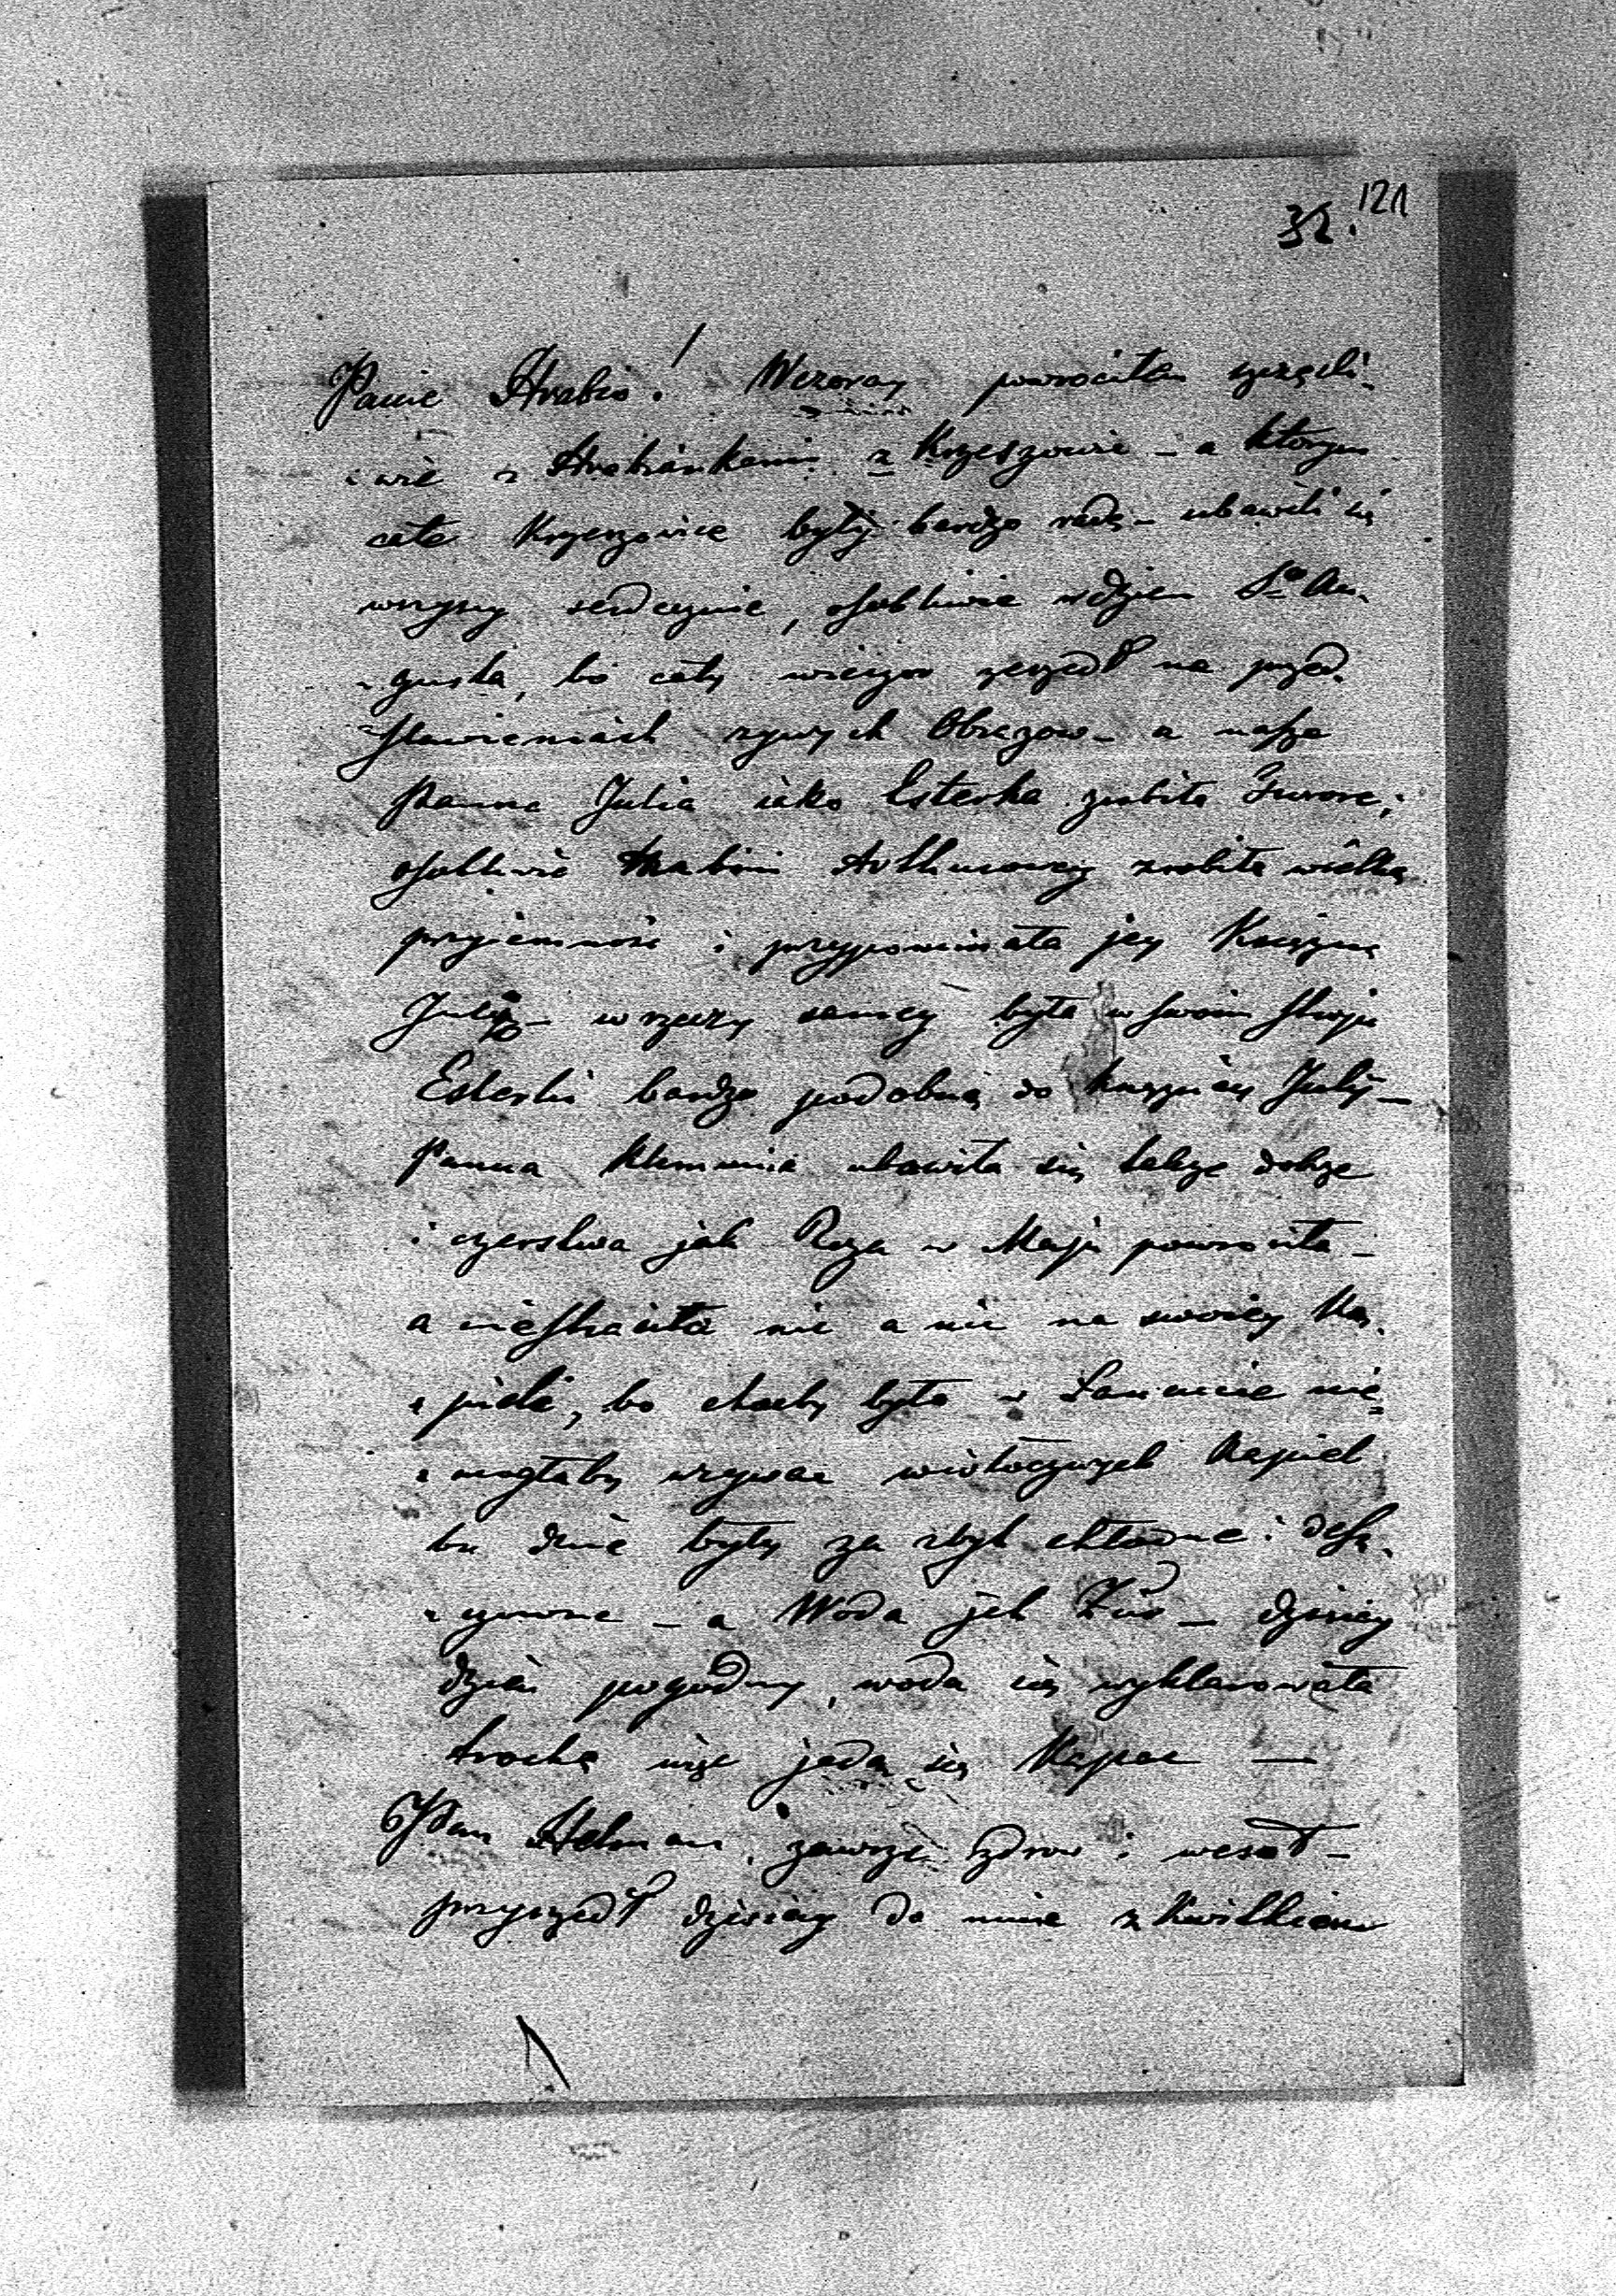 121
32.
Panie Hrabio! Wczoray powrociłem szczęśli-
-wie z Hrabiankami z Krzeszowic – a ktorym
całe Krzeszowice były bardzo rade – ubawili się
wszyscy serdecznie, osobliwie w dzien Sgo Au-
-gusta, bo cały wieczor zeszedł na przed-
-stawieniach zywych Obrazow – a nasza
Panna Julia iako Esterka zrobiła Furore;
osobliwie Hrabini Arthurowey zrobiła wielką
przyiemność i przypominała jey Księżnę
Julią – w rzeczy samey była w swoim stroju
Esterki bardzo podobną do Księżney Julij –
Panna Klemunia ubawiła się takze dobrze
i czerstwa jak Roza w Maju powrociła –
a niestraciła nic a nic na swoiey Ką-
-pieli, bo choćby była w Łancucie nie-
-mogłaby uzywac widocznych Kąpiel
bo dnie były za zbyt chłodne i desz-
-czowne – a Woda jak Żur – dzisiay
dzień pogodny, woda się wyklarowała
trochę więc jadą się Kąpac —
Pan Hetman, zawsze zdrow i wesoł –
przyszedł dzisiay do mnie z Kwilkiem